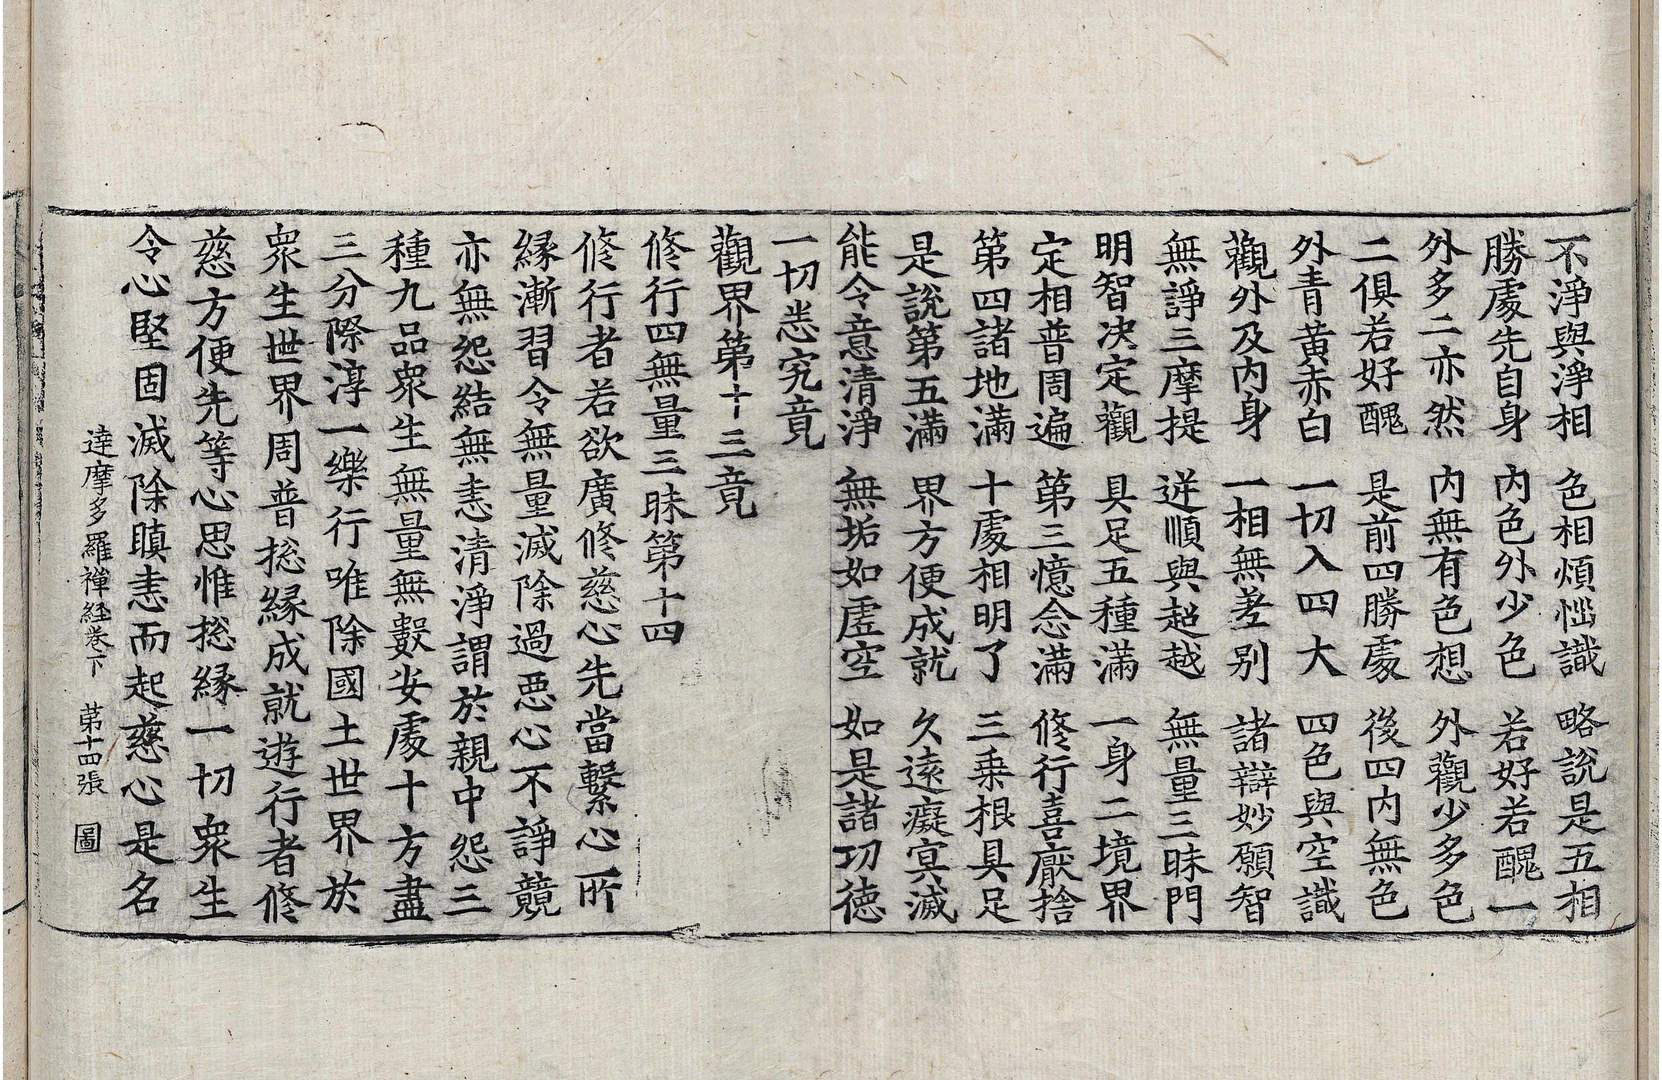 不淨與淨相 色相煩惱識 略說是五相
勝處先自身 內色外少色 若好若醜一
外多二亦然 內無有色想 外觀少多色
二俱若好醜 是前四勝處 後四內無色
外青黃赤白 一切入四大 四色與空識
觀外及內身 一相無差別 諸辯妙願智
無諍三摩提 逆順與超越 無量三昧門
明智决定觀 具足五種滿 一身二境界
定相普周遍 第三憶念滿 修行喜厭捨
第四諸地滿 十處相明了 三乗根具足
是說第五滿 界方便成就 久遠癡冥滅
能令意清淨 無垢如虛空 如是諸功德
一切悉究竟
觀界第十三竟
修行四無量三昧第十四
修行者若欲廣修慈心先當繫心所
緣漸習令無量滅除過惡心不諍競
亦無怨結無恚清淨謂於親中怨三
種九品衆生無量無數安處十方盡
三分際淳一樂行唯除國土世界於
衆生世界周普捴緣成就遊行者修
慈方便先等心思惟捴緣一切衆生
令心堅固滅除瞋恚而起慈心是名
達摩多羅禪経卷下 第十四張 圖